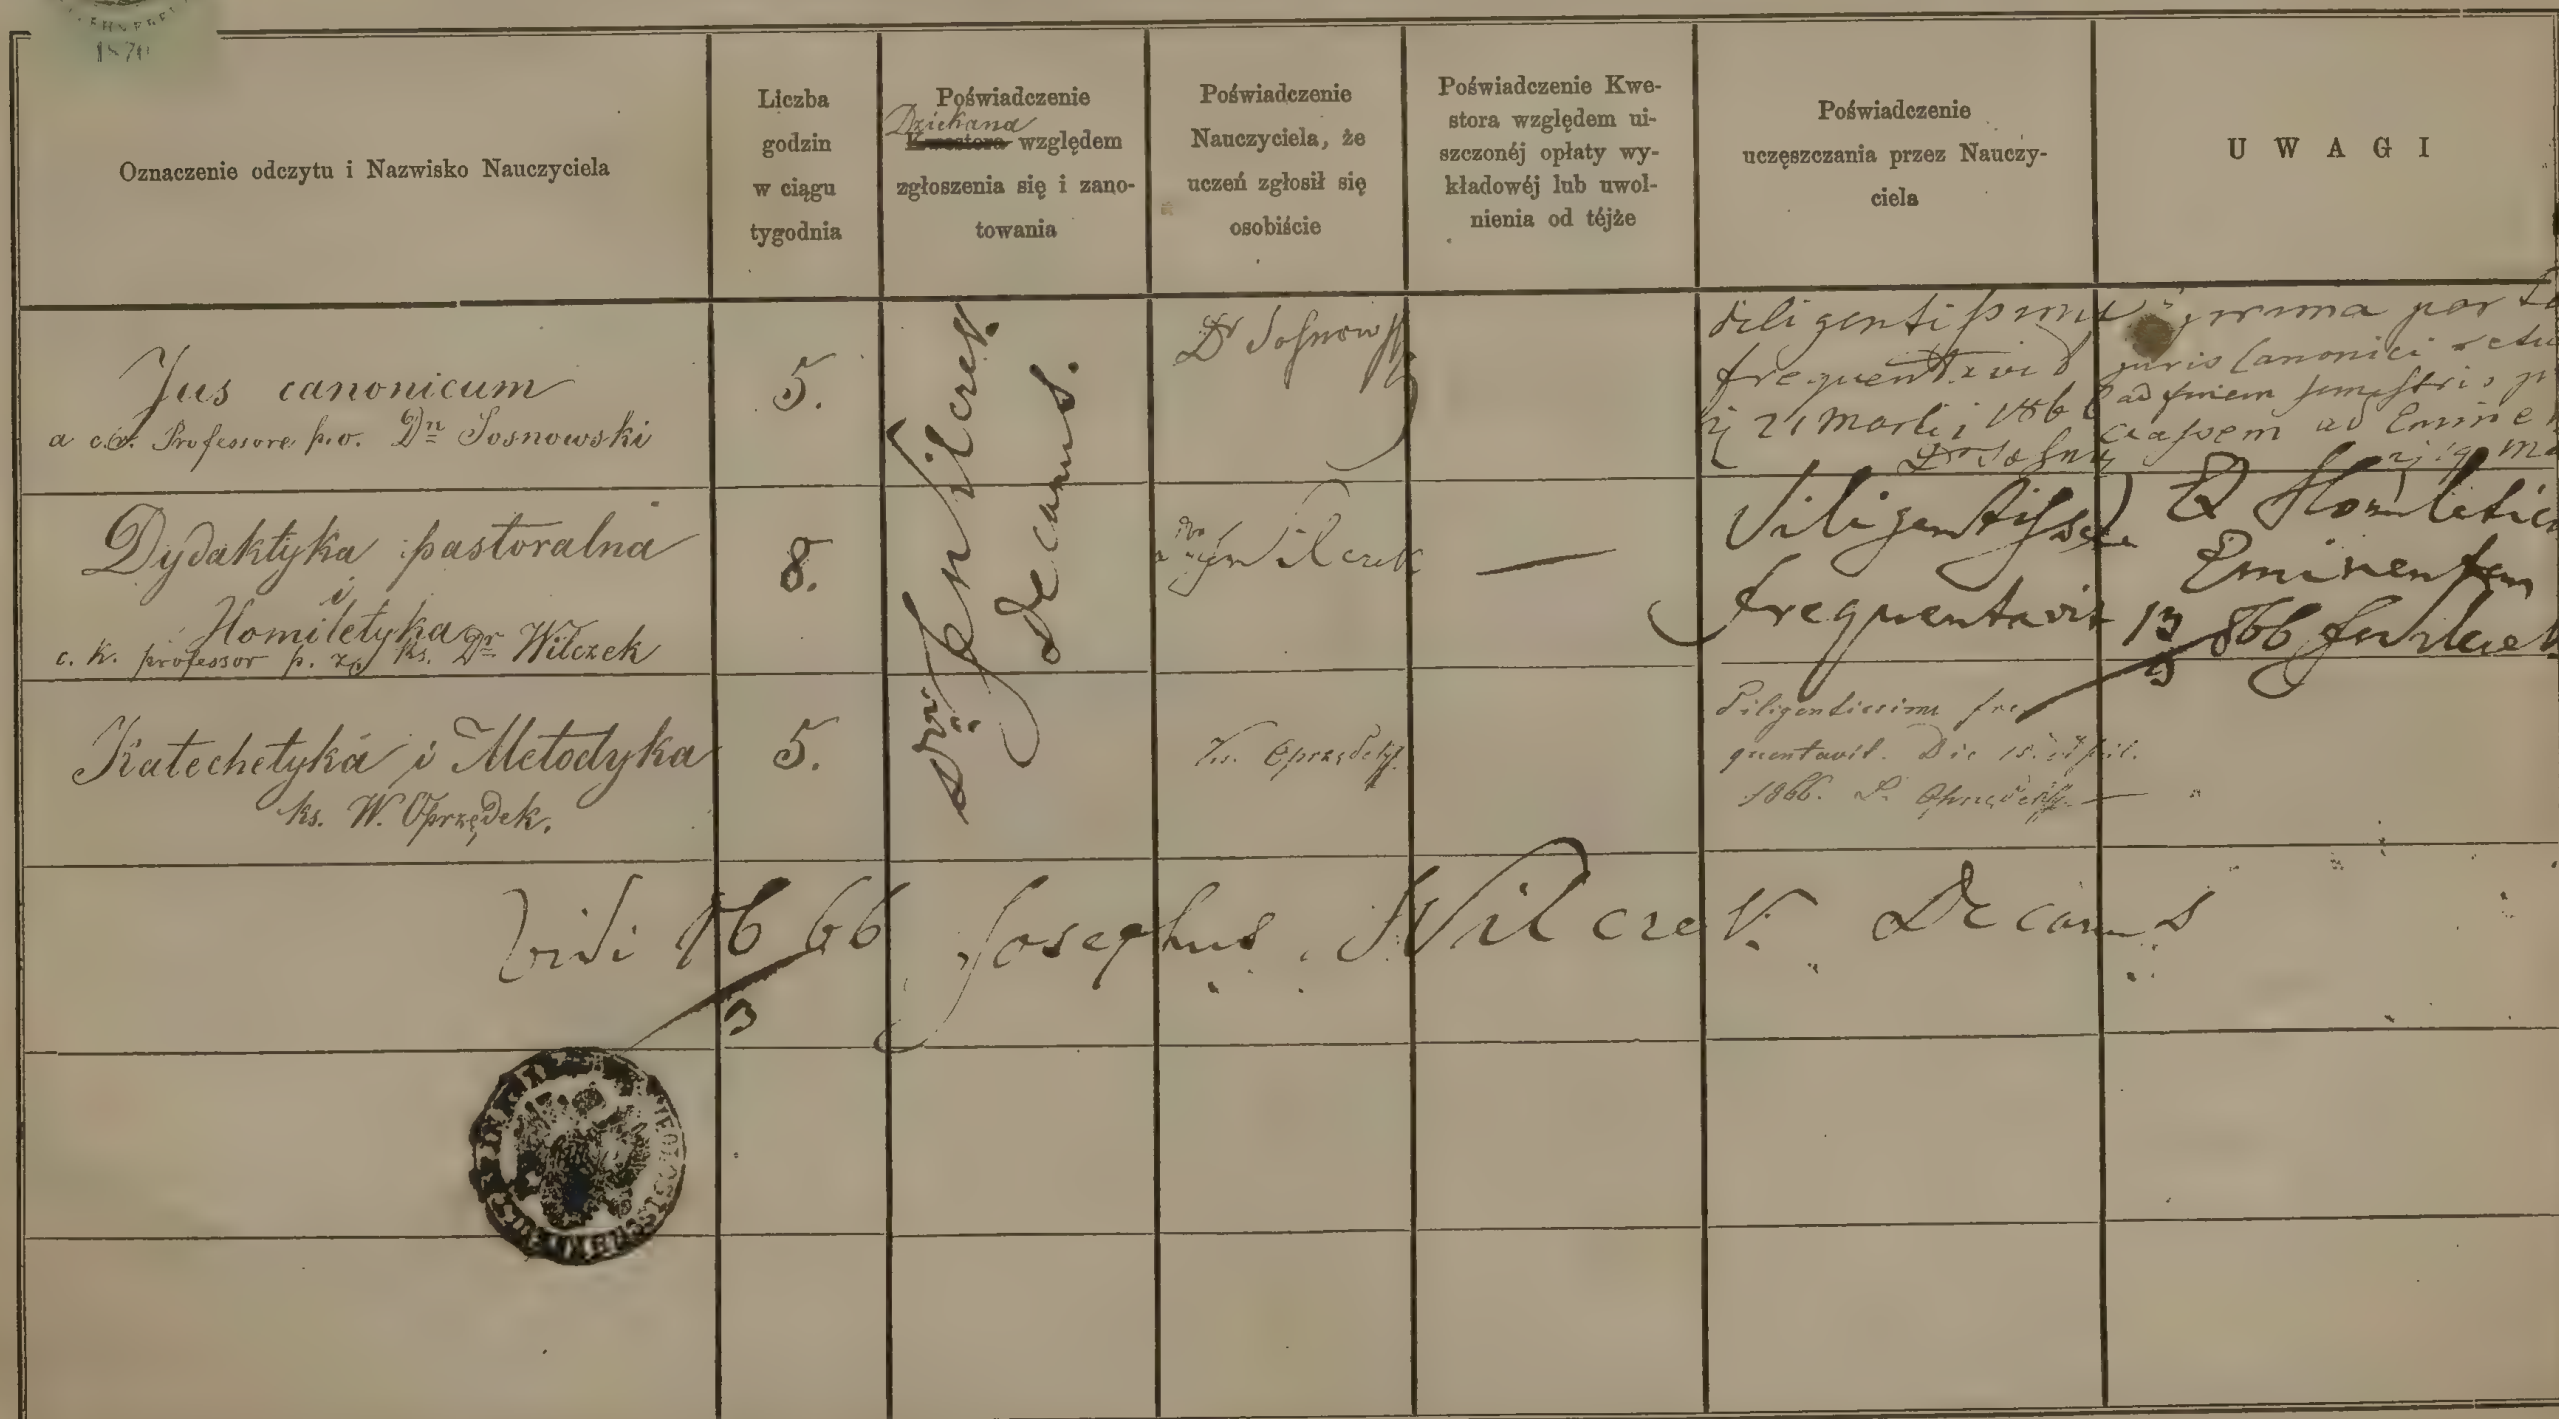 1870
Oznaczenie odczytu i Nazwisko Nauczyciela
Liczba
godzin
w ciągu
tygodnia
Poświadczenie
Dziekana
Kwestora względem
zgłoszenia się i zano-
towania
Poświadczenie
Nauczyciela, że
uczeń zgłosił się
osobiście
Poświadczenie Kwe-
stora względem ui-
szczonéj opłaty wy-
kładowéj lub uwol-
nienia od téjże
Poświadczenie
uczęszczania przez Nauczy-
ciela
UWAGI
Jus canonicum
a c.k. Professore p.o. Dre Sosnowski
5.
Dr Sosnowski
diligentissime
frequentavit
21 Martii 1866
Dr Sosn
prima par
juris Canonici
ad finem semestris
classem ad Emine
Dydaktyka pastoralna
i
Homiletyka
c. k. professor p. z. ks. Dr Wilczek
8.
Dr Jos. Wilczek
Decanus.
Wilczek
—
diligentissime
frequentavit
Ex Homiletica
Eminentem
13/3 866 Jos Wilczek
Katechetyka i Metodyka
ks. W. Oprzędek.
5.
Ks. Oprzędek
Diligentissime fre
quentavit. Die 15. April.
1866. Oprzędek
Vidi 16/3 66 Josephus Wilczek. Decanus